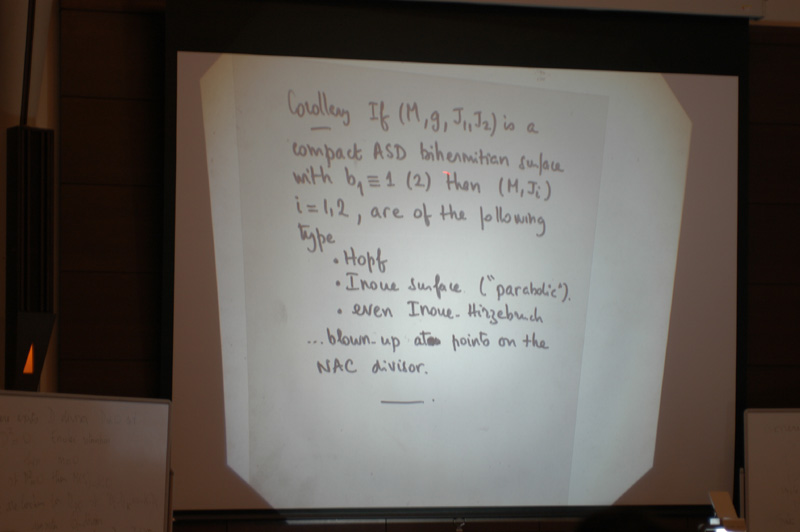 Corollary If (M, g, J₁, J₂) is a
compact ASD bihermitian surface
with b₁ ≡ 1 (2) then (M, Jᵢ)
i = 1, 2, are of the following
type
• Hopf
• Inoue surface ("parabolic").
• even Inoue-Hirzebruch
...blown-up at points on the
NAC divisor.